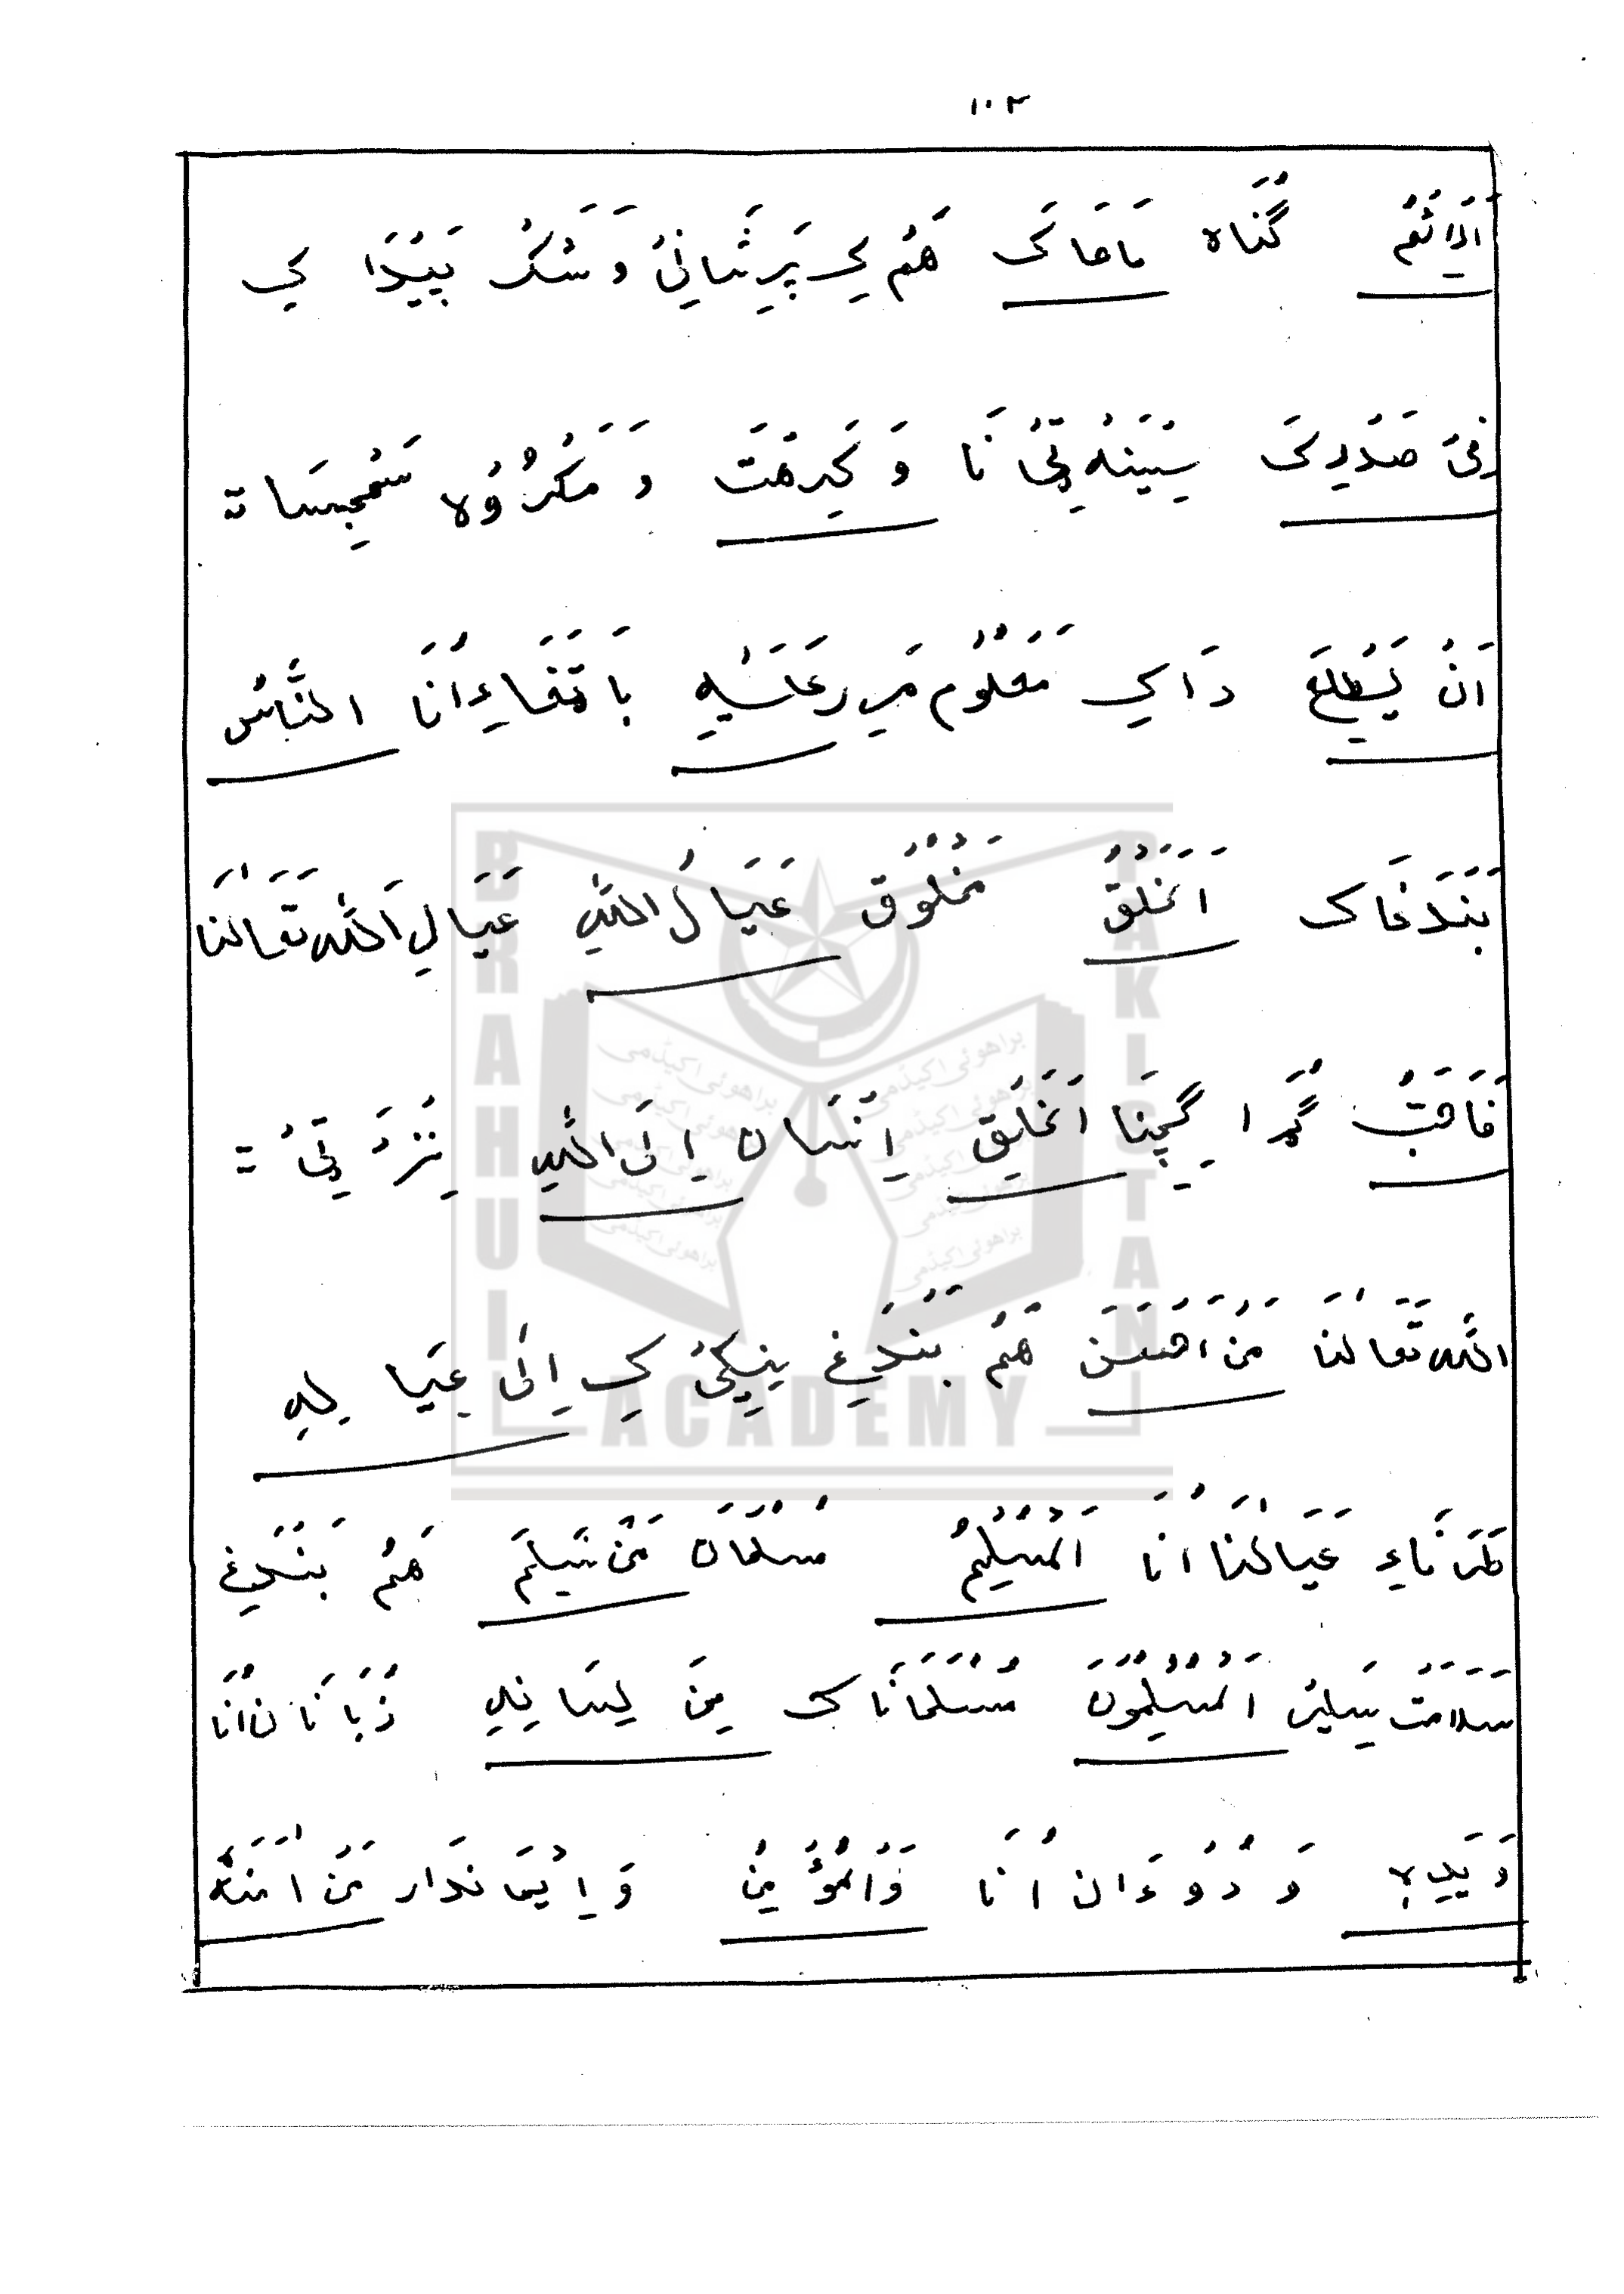 ۱۰۲
اَلْاِثْمُ گُنَاہ مَاحَاکَ هَمُ کِ پَرِشَانِیُ وَ شَکْ پَیْدَا کِ
فِیْ صَدْرِکَ سِیْنَہ ٹِیْ نَا وَ کَرِهْتَ وَ مَکْرُوْہ سَمْجِسَاتہ
اَنْ یَّطَّلِعَ دَا کِ مَعْلُوْم مَرِ عَلَیْهِ بَا تَفَاءِ اَنَا النَّاسُ
بَنْدَغَاک اَلْخَلْقُ مَخْلُوْق عَیَالُ اللّٰهِ عَیَالِ اَللّٰہ تَعَالٰنَا
فَاَحَبُّ گُڑا گِچِنَا الْخَلْقِ اِنْسَان اِلَی اللّٰهِ نِزْدَ ٹِیْ
اللّٰہ تَعَالٰنَا مَنْ اَحْسَنَ هَمُ بَنْدَغ نِیْکِیْ کِ اِلٰی عِیَالِهِ
طَرَفَاءِ عَیَالٰنَا اُنَا اَلْمُسْلِمُ مُسْلْمَان مَنْ سَلِمَ هَمُ بَنْدَغ
سَلَامَتْ سَلِیْر اَلْمُسْلِمُوْنَ مُسْلْمَانَاک مِنْ لِسَانِهِ زُبَانَان اُنَا
وَ یَدِہٖ وَ دُوْءَان اُنَا وَالْمُؤْمِنُ وَ اِیْمَانْدَار مَنْ اٰمَنَهُ
BRAHUI
ACADEMY
PAKISTAN
براهوئی اکیڈمی